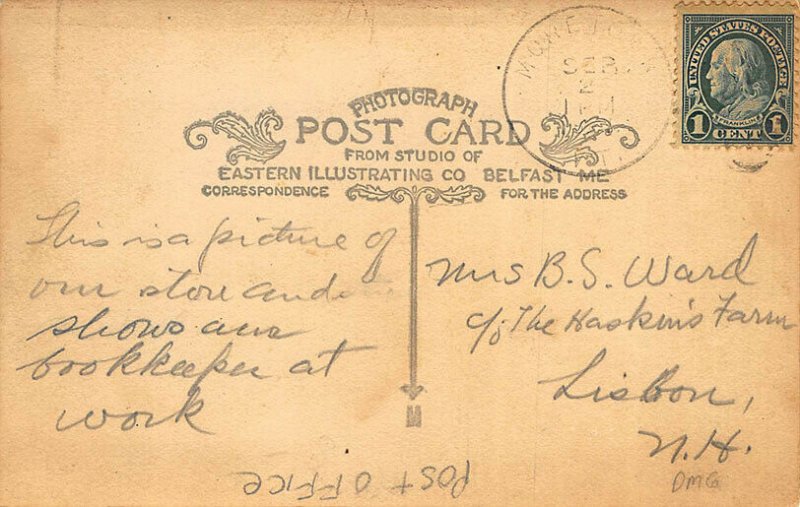 PHOTOGRAPH
POST CARD
FROM STUDIO OF
EASTERN ILLUSTRATING CO BELFAST ME
CORRESPONDENCE
FOR THE ADDRESS
UNITED STATES POSTAGE
FRANKLIN
1 CENT 1
SEP
2
PM
This is a picture of
our store and
shows our
bookkeeper at
work
Mrs B. S. Ward
c/o The Haskins Farm
Lisbon,
N.H.
DMG
M
POST OFFICE